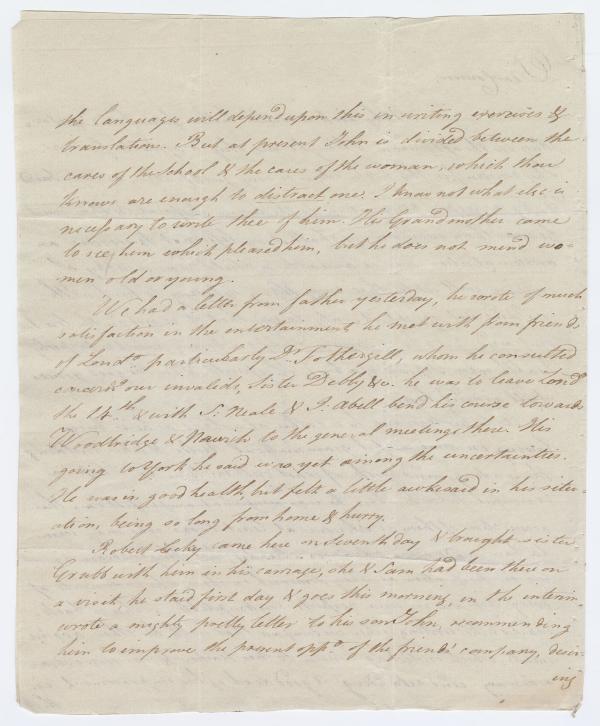 the languages will depend upon this in writing exercises &
translations. But at present John is divided between the
cares of the school & the cares of the woman, which thou
knows are enough to distract one. I know not what else is
necessary to write thee of him. His Grandmother came
to see him which pleased him, but he does not mind wo-
men old or young.
We had a letter from father yesterday, he wrote of much
satisfaction in the entertainment he met with from friends
of Londn. particularly Dr. Fothergill, whom he consulted
concerng. our invalids, Sister Debby &c. he was to leave Lond.
the 14th. & with S: Neale & J. Abell bend his course towards
Woodbridge & Norwich to the general meetings there. His
going to York he said was yet among the uncertainties.
He was in good health, but felt a little awk he said in his situ-
ation, being so long from home & hurry.
Robert Lecky came here on seventh day & brought sister
Grubb with him in his carriage, she & Sam had been there on
a visit, he staid first day & goes this morning, in the interim
wrote a mighty pretty letter to his son John, recommending
him to improve the present oppy. of the friends' company, desir-
ing